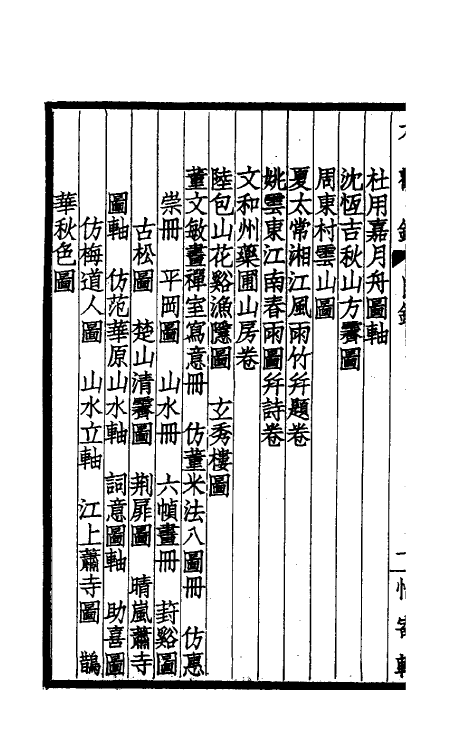 杜用嘉月舟圖軸
沈恆吉秋山方霽圖
周東村雲山圖
夏太常湘江風雨竹幷題卷
姚雲東江南春雨圖幷詩卷
文和州藥圃山房卷
陸包山花谿漁隱圖　玄秀樓圖
董文敏畫禪室寫意冊　仿董米法八圖冊　仿惠
崇冊　平岡圖　山水冊　六幀畫冊　葑谿圖
古松圖　楚山清霽圖　荆扉圖　晴嵐蕭寺
圖軸　仿范華原山水軸　詞意圖軸　助喜圖
仿梅道人圖　山水立軸　江上蕭寺圖　鵲
華秋色圖